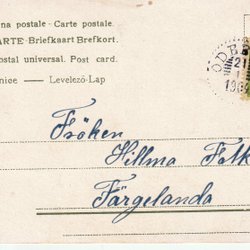 na postale - Carte postale.
ARTE - Briefkaart Brefkort.
ostal universal. Post card.
nice — Levelező-Lap
Fröken
Hillma Falk
Färgelanda